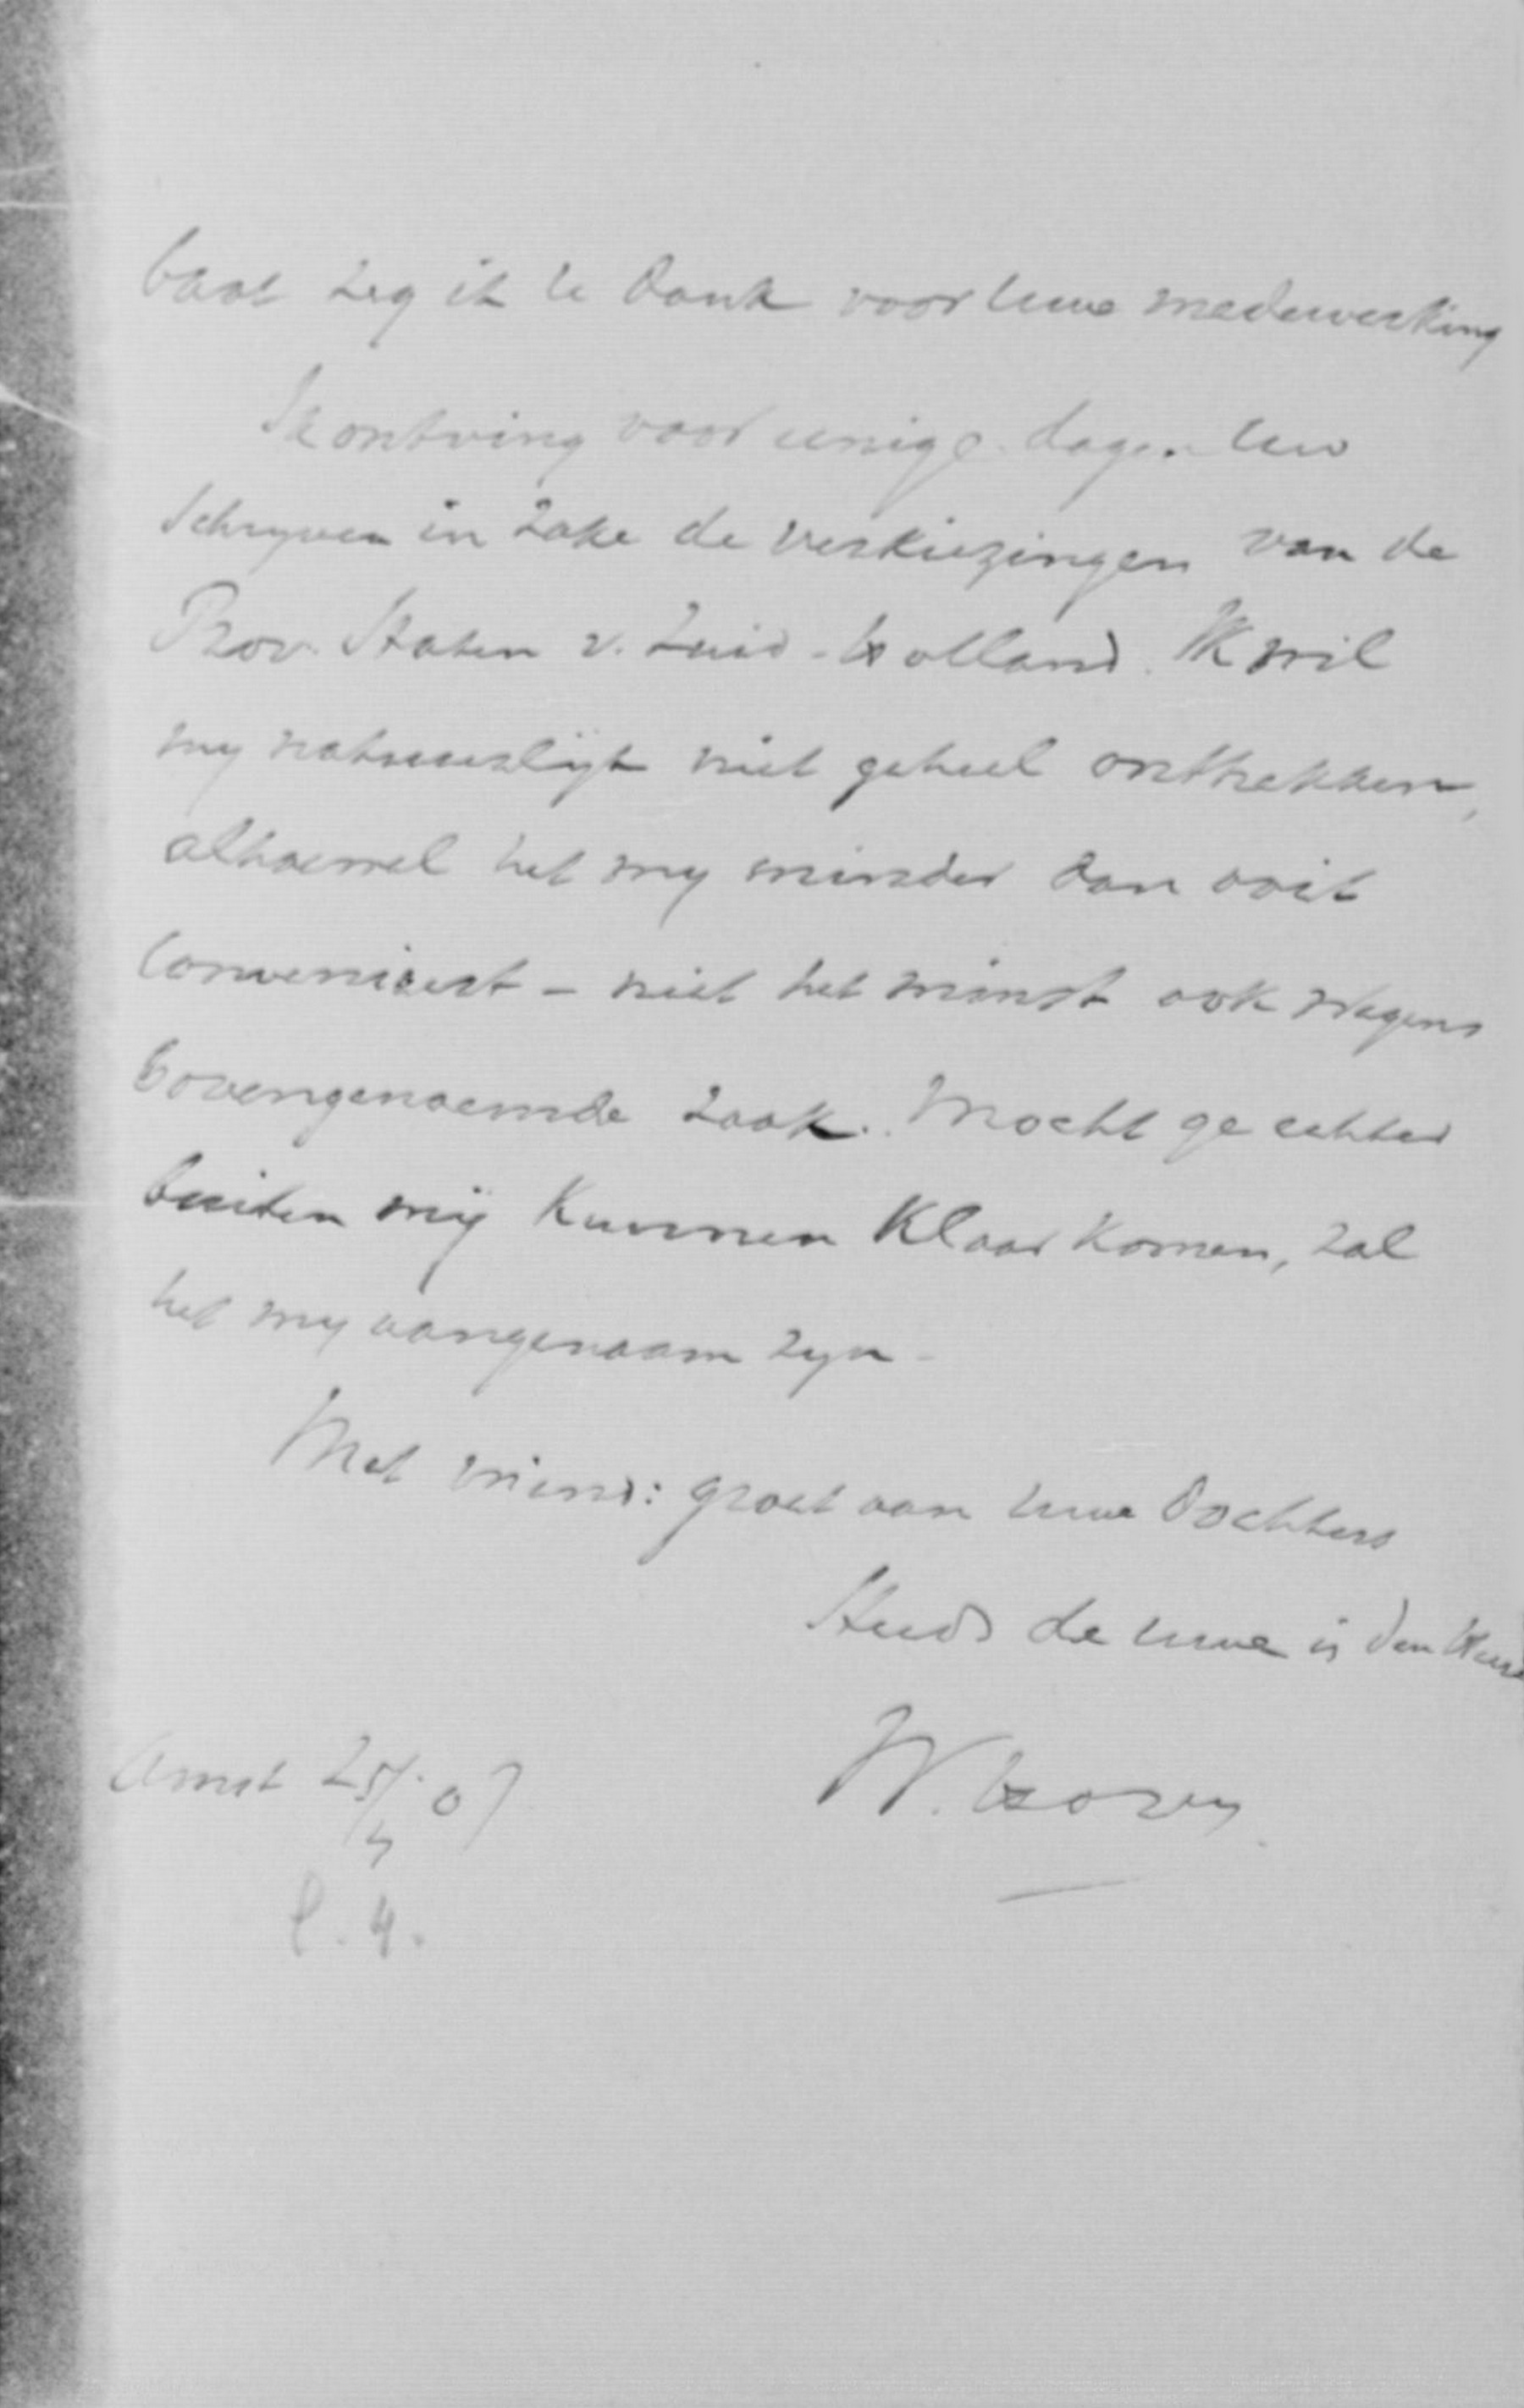 baat zeg ik U dank voor Uwe medewerking
Ik ontving voor eenige dagen Uw
schryven in zake de verkiezingen van de
Prov. Staten v. Zuid-Holland. Ik wil
my natuurlijk niet geheel onttrekken,
alhoewel het my minder dan ooit
convenieert - niet het minst ook wegens
bovengenoemde zaak. Mocht ge echter
buiten mij kunnen klaar komen, zal
het my aangenaam zyn -
Met vriend: groet aan Uwe dochters
Steeds de Uwe in den Heere
W. Hovy
Amst 25/4 07
P. 4.